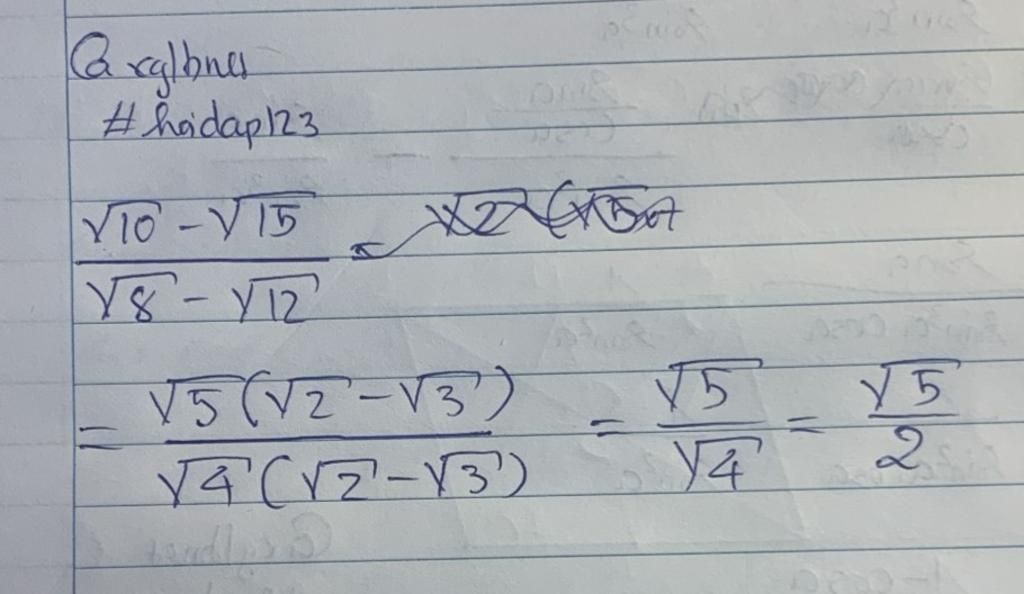 @rglbnes
#hoidap123
√10 - √15 / √8 - √12 =
= √5(√2 - √3) / √4(√2 - √3) = √5 / √4 = √5 / 2